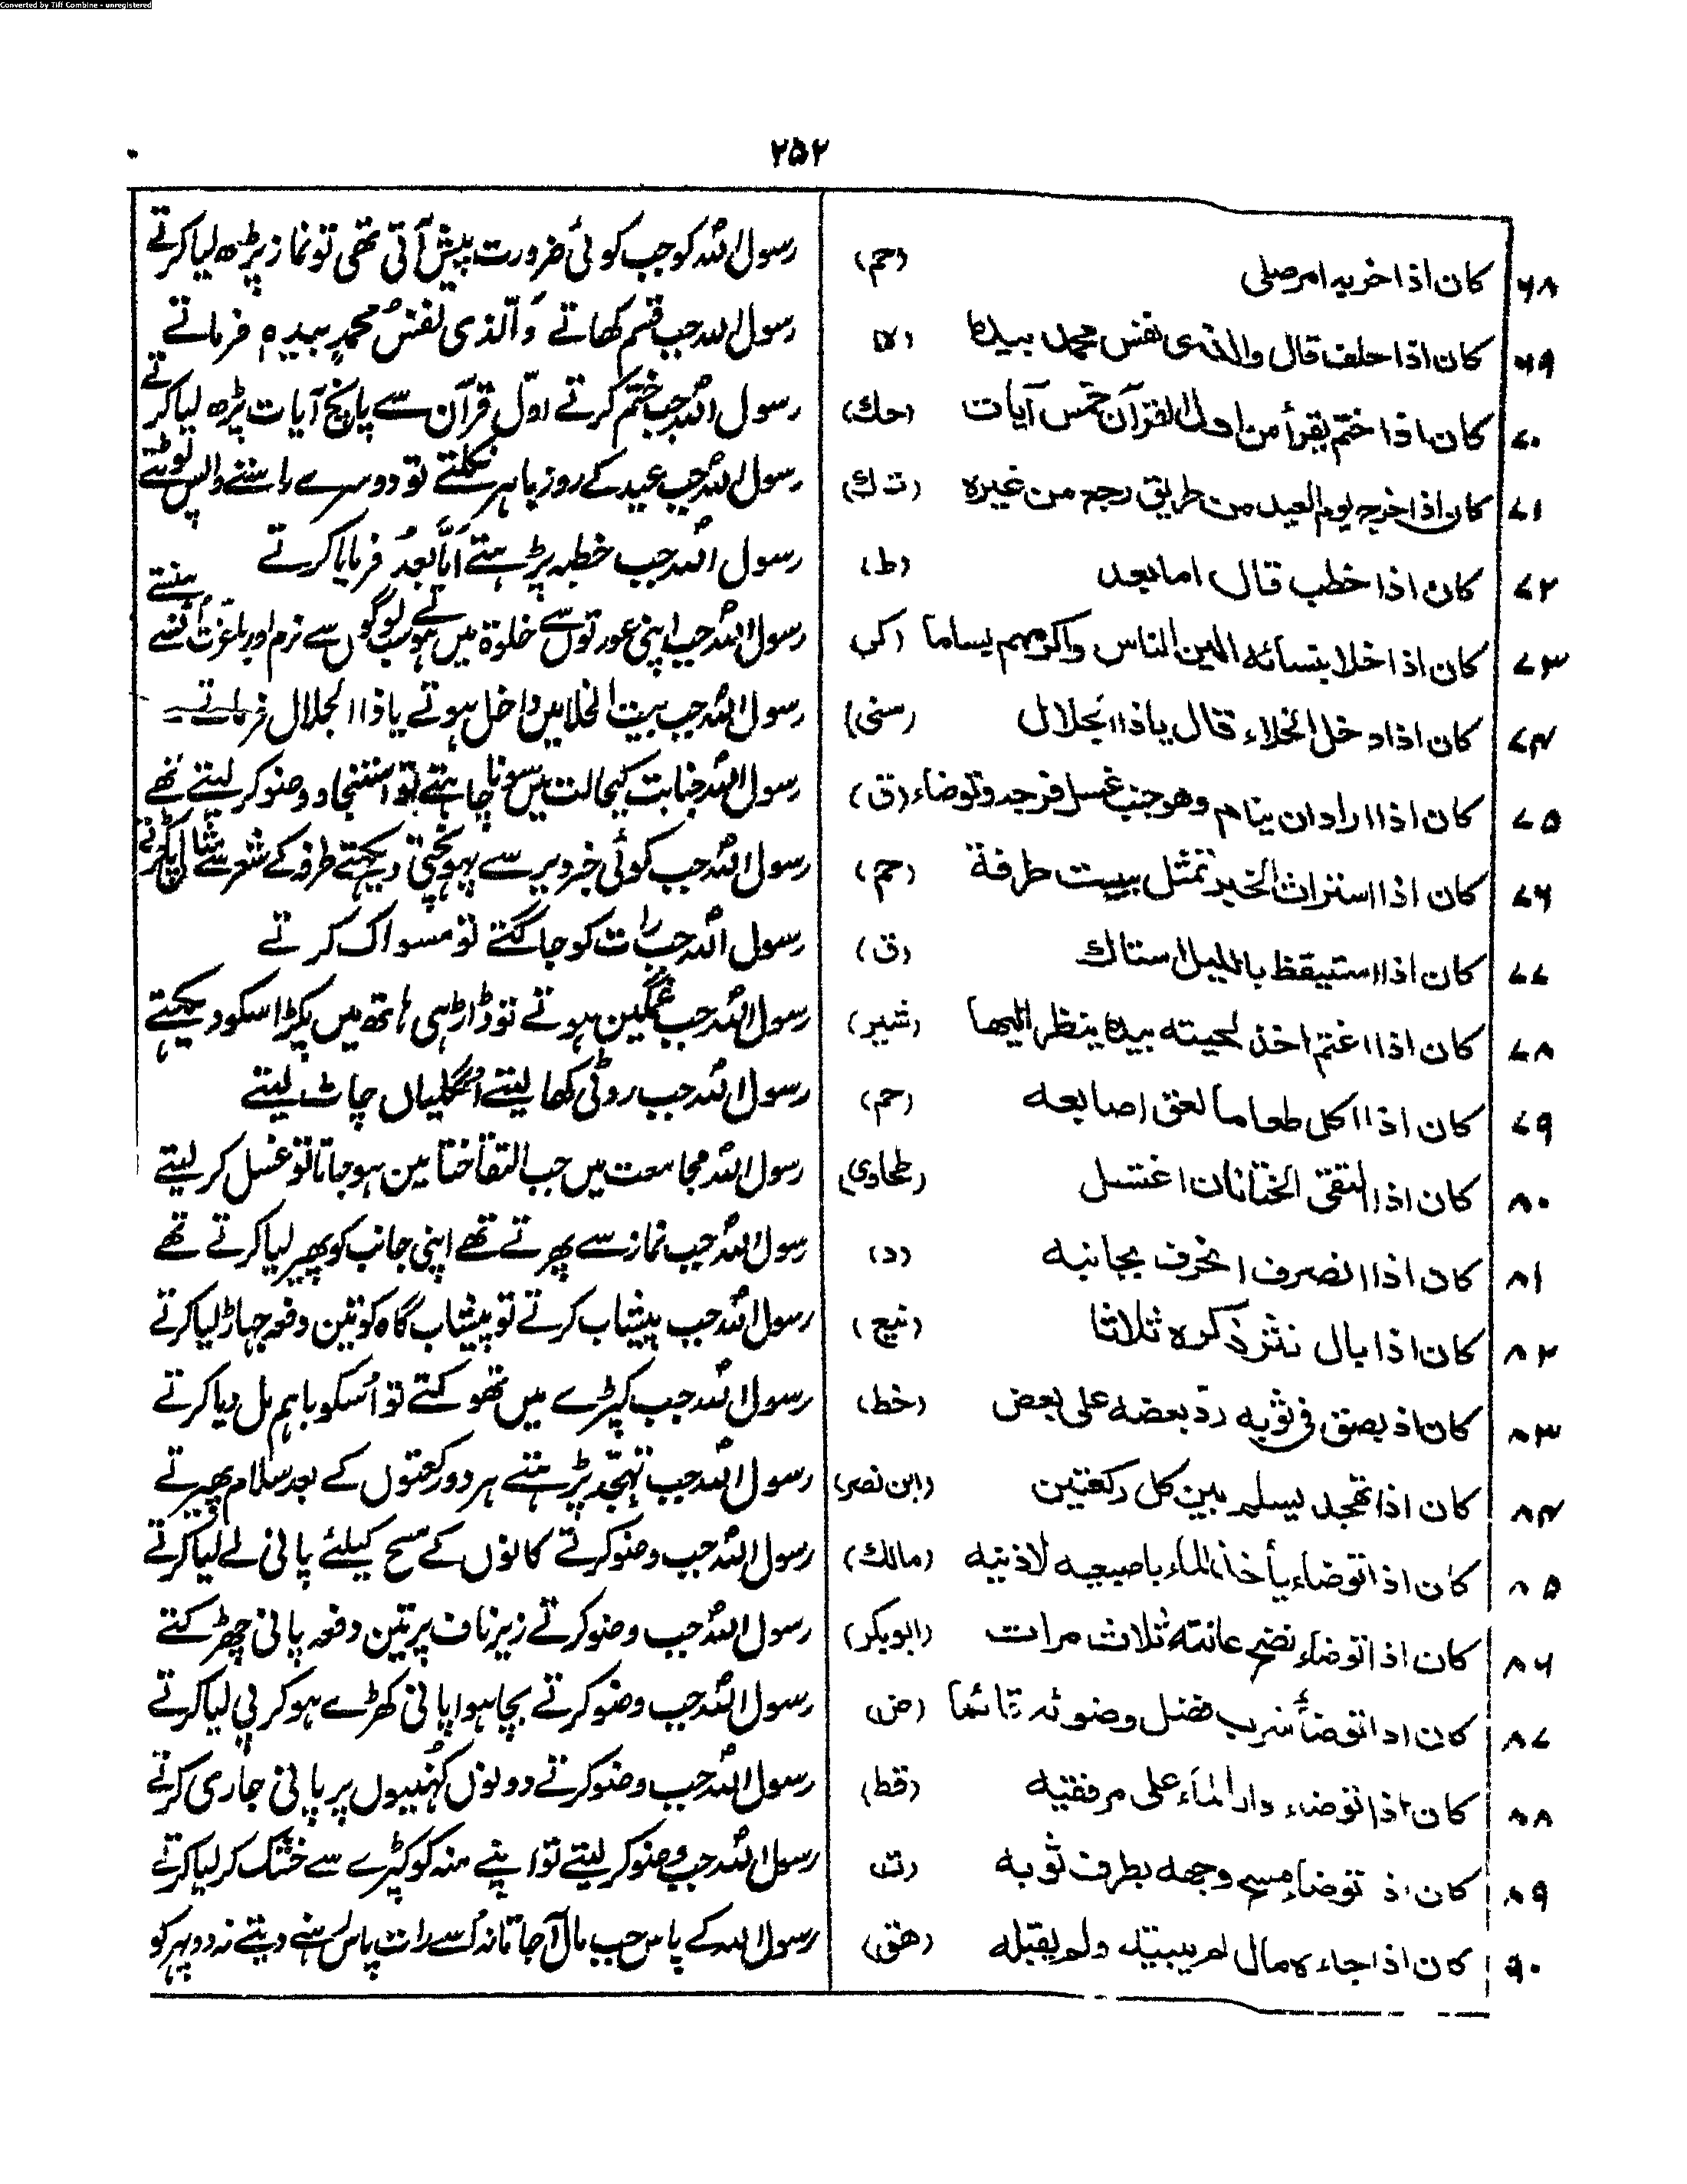 Converted by Tiff Combine - unregistered
۲۵۲
۶۸ کان اذا حزبہ امر صلی (حم) رسول اللہؐ کو جب کوئی ضرورت پیش آتی تھی تو نماز پڑھ لیا کرتے
۶۹ کان اذا حلف قال والذی نفس محمد بیدہ (ہ) رسول اللہ جب قسم کھاتے وَالّذی نفسُ محمدٍ بیدہٖ فرماتے
۷۰ کان اذا ختم یقرأ من اول القرآن خمس آیات (حك) رسول اللہؐ جب ختم کرتے اوّل قرآن سے پانچ آیات پڑھ لیا کرتے
۷۱ کان اذا خرج یوم العید من طریق رجع من غیرہ (ت ك) رسول اللہؐ جب عید کے روز باہر نکلتے تو دوسرے راستے واپس لوٹتے
۷۲ کان اذا خطب قال اما بعد (ط) رسول اللہؐ جب خطبہ پڑہتے اَمَّا بَعدُ فرمایا کرتے
۷۳ کان اذا خلا بنسائہ الین الناس واکرمہم بساما (کر) رسول اللہؐ جب اپنی عورتوں سے خلوة میں ہوتے سب لوگوں سے نرم اور باعزت اُنسے ہنستے
۷۴ کان اذا دخل الخلاء قال یاذا الجلال (سنی) رسول اللہؐ جب بیت الخلا میں داخل ہوتے یاذا الجلال فرماتے
۷۵ کان اذا اراد ان ینام وھو جنب غسل فرجہ وتوضاء (ق) رسول اللہؐ جنابت کیحالت میں سونا چاہتے تو استنجا و وضو کر لیتے تھے
۷۶ کان اذا استراث الخبر تمثل ببیت طرفة (حم) رسول اللہؐ جب کوئی خبر دیر سے پہونچتی دیکہتے طرفہ کے شعر سے تمثا
۷۷ کان اذا استیقظ باللیل استاك (ق) رسول اللہؐ جب رات کو جاگتے تو مسواک کرتے
۷۸ کان اذا اغتم اخذ لحیتہ بیدہ ینظر الیھا (شیر) رسول اللہؐ جب غمگین ہوتے تو ڈاڑہی ہاتھ میں پکڑ اسکو دیکہتے
۷۹ کان اذا اکل طعاما لعق اصابعہ (حم) رسول اللہؐ جب روٹی کھا لیتے اُنگلیاں چاٹ لیتے
۸۰ کان اذا التقی الختانان اغتسل (طحاوی) رسول اللہؐ مجامعت میں جب التقا ختانین ہو جاتا تو غسل کر لیتے
۸۱ کان اذا انصرف انحرف بجانبہ (د) رسول اللہؐ جب نماز سے پھرتے تھے اپنی جانب کو پھیر لیا کرتے تھے
۸۲ کان اذا بال نثر ذکرہ ثلاثا (نیج) رسول اللہؐ جب پیشاب کرتے تو پیشاب گاہ کو تین دفعہ جہاڑ لیا کرتے
۸۳ کان اذ بصق فی ثوبہ ردّ بعضہ علی بعض (خط) رسول اللہؐ جب کپڑے میں تھوکتے تو اُسکو باہم مل دیا کرتے
۸۴ کان اذا تھجد یسلم بین کل رکعتین (ابن نصر) رسول اللہؐ جب تہجّد پڑہتے ہر دو رکعتوں کے بعد سلام پھیرتے
۸۵ کان اذا توضاء یأخذ الماء باصبعیہ لاذنیہ (مالك) رسول اللہؐ جب وضو کرتے کانوں کے مسح کیلئے پانی لے لیا کرتے
۸۶ کان اذا توضاء نضح عانتہ ثلاث مرات (ابوبکر) رسول اللہؐ جب وضو کرتے زیر ناف پر تین دفعہ پانی چھڑکتے
۸۷ کان اذا توضأ شرب فضل وضوئہ قائما (ض) رسول اللہؐ جب وضو کرتے بچا ہوا پانی کھڑے ہو کر پی لیا کرتے
۸۸ کان اذا توضاء دار الماء علی مرفقیہ (قط) رسول اللہؐ جب وضو کرتے دونوں کُہنیوں پر پانی جاری کرتے
۸۹ کان اذ توضاء مسح وجھہ بطرف ثوبہ (ت) رسول اللہؐ جب وضو کر لیتے تو اپنے منہ کو کپڑے سے خشک کر لیا کرتے
۹۰ کان اذا جاءہ مال لم یبیتہ ولم یقبلہ (ھق) رسول اللہ کے پاس جب مال آ جاتا نہ اُسے رات پاس رہنے دیتے نہ دوپہر کو